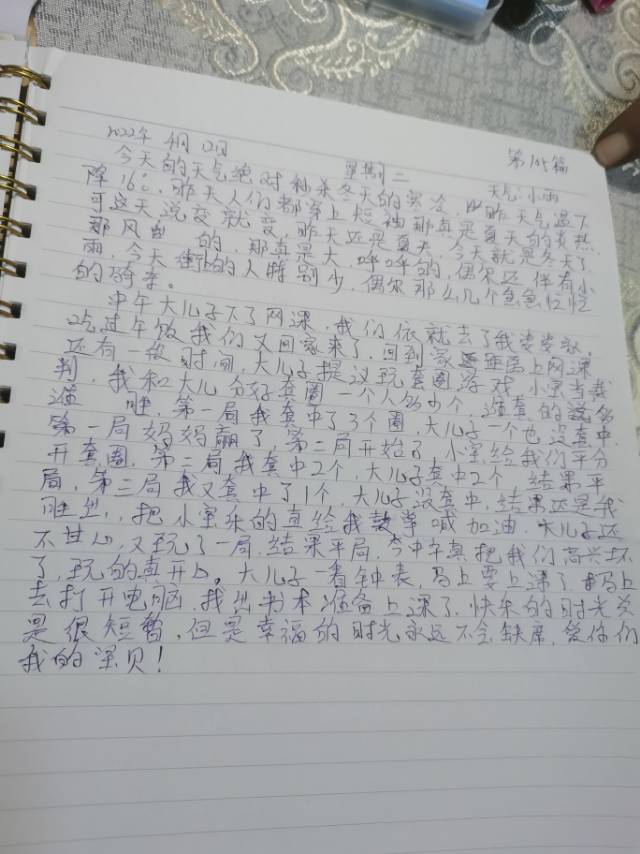 第105篇
2022年 4月12日 星期二 天气:小雨
今天的天气绝对秒杀冬天的寒冷,比昨天气温下
降16℃,昨天人们都穿上短袖那真是夏天的炎热,
可这天说变就变,昨天还是夏天,今天就是冬天了
那风由 的,那真是大,呼呼的,偶尔还伴有小
雨,今天街上的人特别少,偶尔那么几个急急忙忙
的骑车。
中午大儿子下了网课,我们依就去了我婆婆家,
吃过午饭我们又回家来了,回到家 马上网课
还有一段时间,大儿子提议玩套圈游戏,小宝当裁
判,我和大儿分好套圈一个人多少个,谁套的
谁 胜,第一局我套中了3个圈,大儿子一个也没套中
第一局妈妈赢了,第二局开始了,小宝给我们平分
开套圈,第二局我套中2个,大儿子套中2个,结果平
局,第三局我又套中了1个,大儿子没套中,结果还是我
胜出,把小宝乐的直给我鼓掌喊加油,大儿子还
不甘心,又玩了一局,结果平局,今中午真把我们高兴坏
了,玩的真开心。大儿子一看钟表,马上要上课了
去打开电脑,我出书本准备上课了,快乐的时光总
是很短暂,但是幸福的时光永远不会缺席,爱你们
我的宝贝!